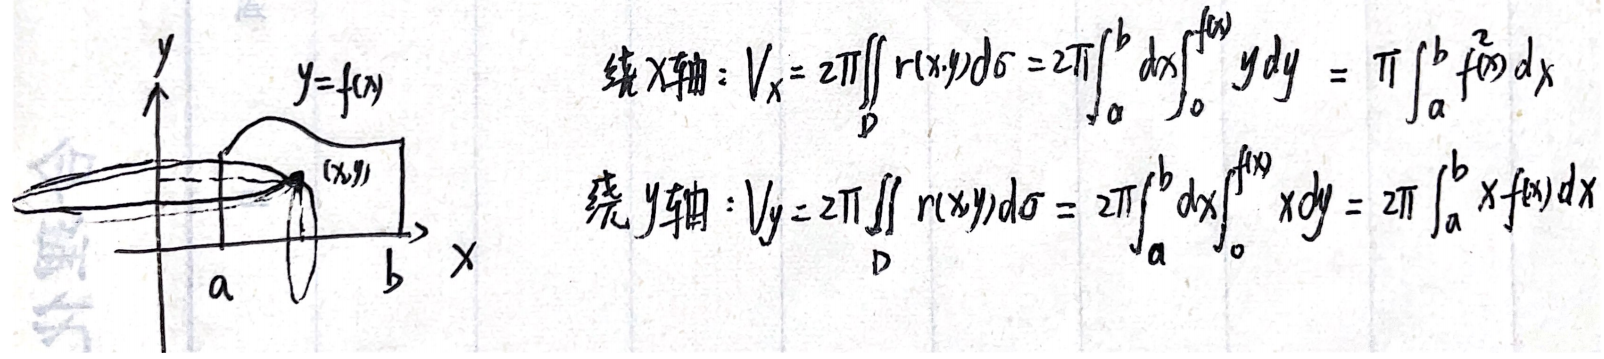 y
y=f(x)
(x,y)
a
b
x
绕X轴：Vx = 2π∬_D r(x,y)dσ = 2π∫_a^b dx∫_0^{f(x)} y dy = π∫_a^b f²(x) dx
绕y轴：Vy = 2π∬_D r(x,y)dσ = 2π∫_a^b dx∫_0^{f(x)} x dy = 2π∫_a^b x f(x) dx